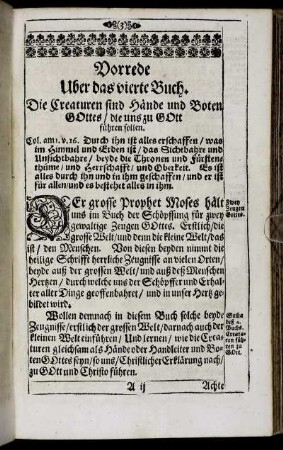 (3)
Vorrede
Uber das vierte Buch.
Die Creaturen sind Hände und Boten
GOttes / die uns zu GOtt
führen sollen.
Col. am 1. v. 16. Durch ihn ist alles erschaffen / was
im Himmel und Erden ist / das Sichtbahre und
Unsichtbahre / beyde die Thronen und Fürsten-
thüme / und Herrschafft / und Oberkeit. Es ist
alles durch ihn und in ihm geschaffen / und er ist
für allen / und es bestehet alles in ihm.
DEr grosse Prophet Moses hält
uns im Buch der Schöpffung für zwey
gewaltige Zeugen GOttes. Erstlich / die
grosse Welt / und denn die kleine Welt / das
ist / den Menschen. Von diesen beyden nimmt die
heilige Schrifft herrliche Zeugnisse an vielen Orten /
beyde auß der grossen Welt / und auß deß Menschen
Hertzen / durch welche uns der Schöpffer und Erhal-
ter aller Dinge geoffenbahret / und in unser Hertz ge-
bildet wird.
Zwey
Zeugen
Gottes.
Wollen demnach in diesem Buch solche beyde
Zeugnisse / erstlich der grossen Welt / darnach auch der
kleinen Welt einführen / Und lernen / wie die Crea-
turen gleichsam als Hände oder Handleiter und Bo-
ten GOttes seyn / so uns / Christlicher Erklärung nach /
zu GOtt und Christo führen.
deß 4.
Buchs.
Creatu-
ren füh-
ren zu
GOtt.
A ij
Achte